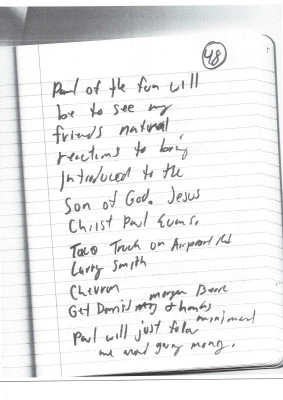 48
Part of the fun will
be to see my
friends natural
reactions to being
introduced to the
Son of God. Jesus
Christ Paul Evans.
Taco Truck on Airport Rd
Larry Smith
Chevron
morgan
Get & hanks
Paul will just
me and giving money.